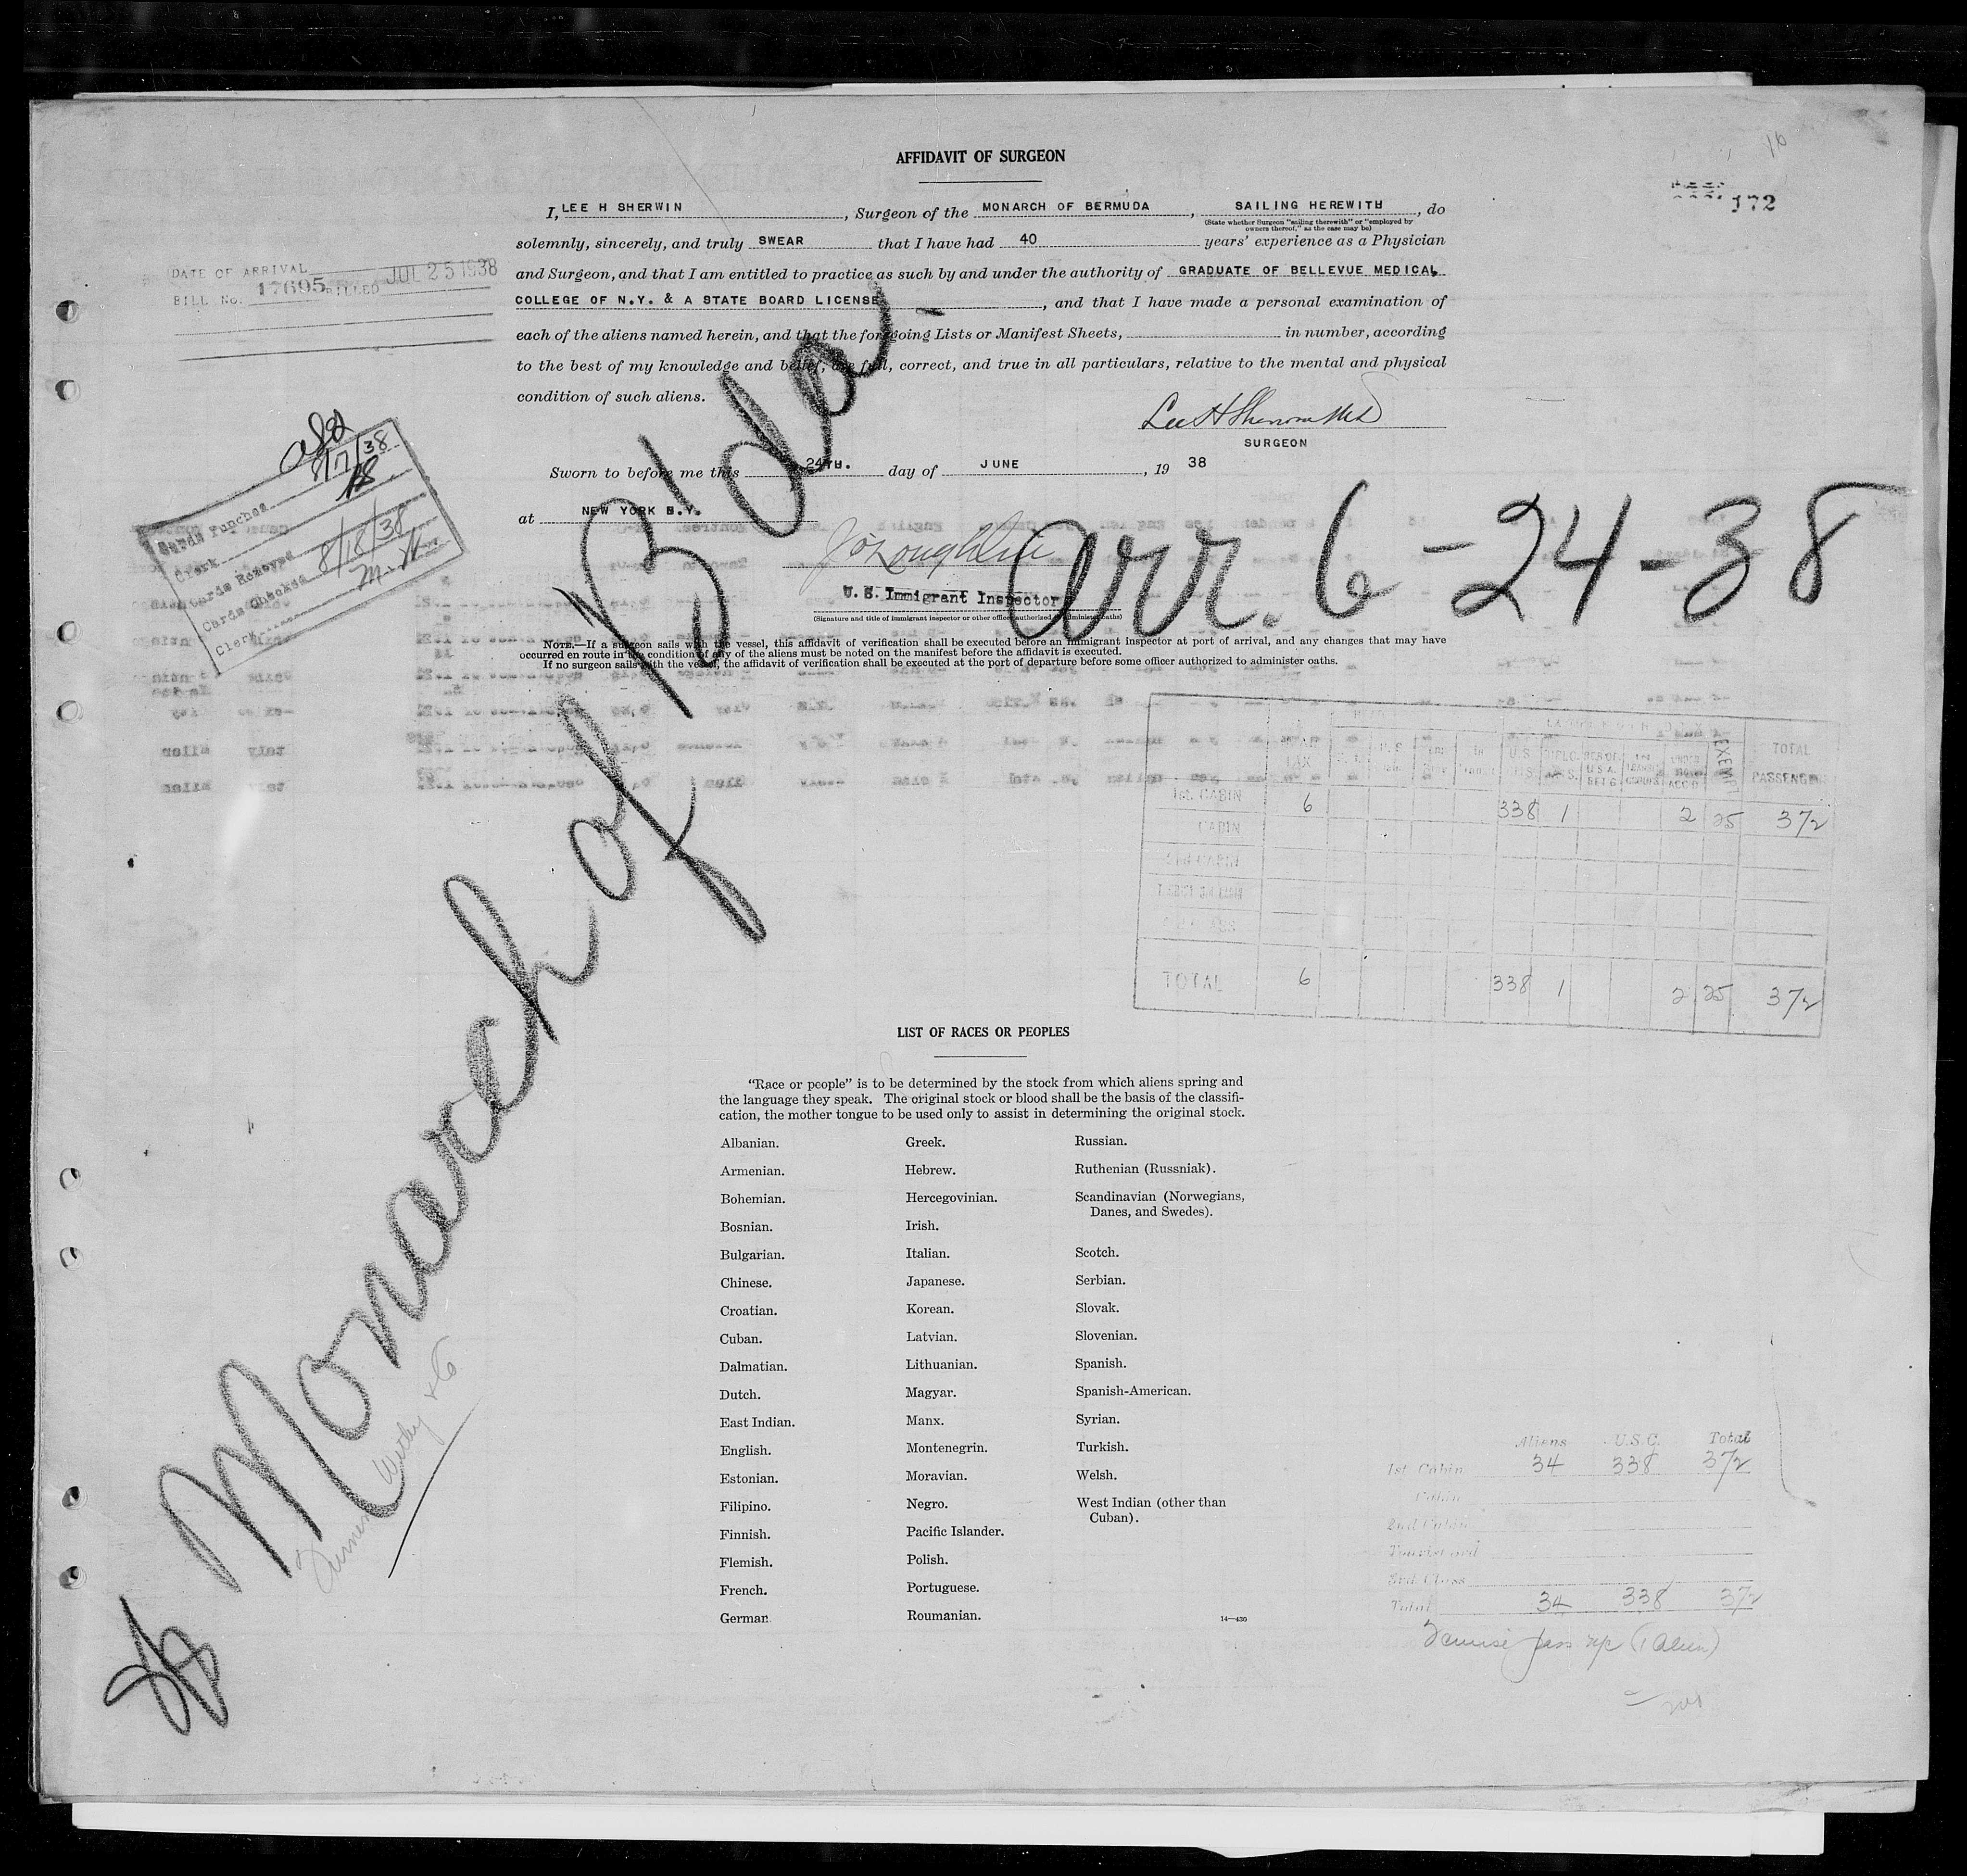 16
172
AFFIDAVIT OF SURGEON
I, LEE H SHERWIN, Surgeon of the MONARCH OF BERMUDA, SAILING HEREWITH, do
(State whether Surgeon "sailing therewith" or "employed by
owners thereof," as the case may be)
solemnly, sincerely, and truly SWEAR that I have had 40 years' experience as a Physician
and Surgeon, and that I am entitled to practice as such by and under the authority of GRADUATE OF BELLEVUE MEDICAL
COLLEGE OF N.Y. & A STATE BOARD LICENSE, and that I have made a personal examination of
each of the aliens named herein, and that the foregoing Lists or Manifest Sheets, in number, according
to the best of my knowledge and belief, are full, correct, and true in all particulars, relative to the mental and physical
condition of such aliens.
Lee H Sherwin MD
SURGEON
Sworn to before me this 24TH. day of JUNE, 19 38
at NEW YORK N.Y.
U. S. Immigrant Inspector
(Signature and title of immigrant inspector or other officer authorized to administer oaths)
NOTE.—If a surgeon sails with the vessel, this affidavit of verification shall be executed before an immigrant inspector at port of arrival, and any changes that may have
occurred en route in the condition of any of the aliens must be noted on the manifest before the affidavit is executed.
If no surgeon sails with the vessel, the affidavit of verification shall be executed at the port of departure before some officer authorized to administer oaths.
DATE OF ARRIVAL
BILL No. 17695 BILLED JUL 25 1938
Cards Punched 8/17/38
Clerk
Cards Removed
Cards Checked 8/18/38
Clerk
Monarch of Bda.
arr. 6-24-38
EXEMPT
TAX
TOTAL
PASSENGERS
1st CABIN 6 338 1 2 25 372
CABIN
2nd CABIN
TOTAL 6 338 1 2 25 372
LIST OF RACES OR PEOPLES
"Race or people" is to be determined by the stock from which aliens spring and
the language they speak. The original stock or blood shall be the basis of the classifi-
cation, the mother tongue to be used only to assist in determining the original stock.
Albanian.
Armenian.
Bohemian.
Bosnian.
Bulgarian.
Chinese.
Croatian.
Cuban.
Dalmatian.
Dutch.
East Indian.
English.
Estonian.
Filipino.
Finnish.
Flemish.
French.
German
Greek.
Hebrew.
Hercegovinian.
Irish.
Italian.
Japanese.
Korean.
Latvian.
Lithuanian.
Magyar.
Manx.
Montenegrin.
Moravian.
Negro.
Pacific Islander.
Polish.
Portuguese.
Roumanian.
Russian.
Ruthenian (Russniak).
Scandinavian (Norwegians,
Danes, and Swedes).
Scotch.
Serbian.
Slovak.
Slovenian.
Spanish.
Spanish-American.
Syrian.
Turkish.
Welsh.
West Indian (other than
Cuban).
14—430
Aliens U.S.C. Total
1st Cabin 34 338 372
Cabin
2nd Cabin
Tourist 3rd
3rd Class
Total 34 338 372